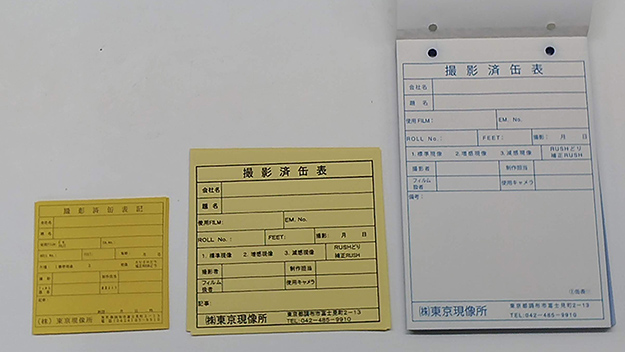 撮影済缶表記
会社名
題 名
(株)東京現像所
撮影済缶表
会社名
題 名
使用FILM:
EM. No.
ROLL No.:
FEET:
撮影: 月 日
1. 標準現像 2. 増感現像 3. 減感現像
RUSHどり
補正RUSH
撮影者
制作担当
フィルム
使用キャメラ
記事:
(株)東京現像所
東京都調布市富士見町2-13
TEL.042-485-9910
撮影済缶表
会社名
題 名
使用FILM:
EM. No.
ROLL No.:
FEET:
撮影: 月 日
1. 標準現像 2. 増感現像 3. 減感現像
RUSHどり
補正RUSH
撮影者
制作担当
フィルム
使用キャメラ
備考:
(株)東京現像所
東京都調布市富士見町2-13
TEL.042-485-9910